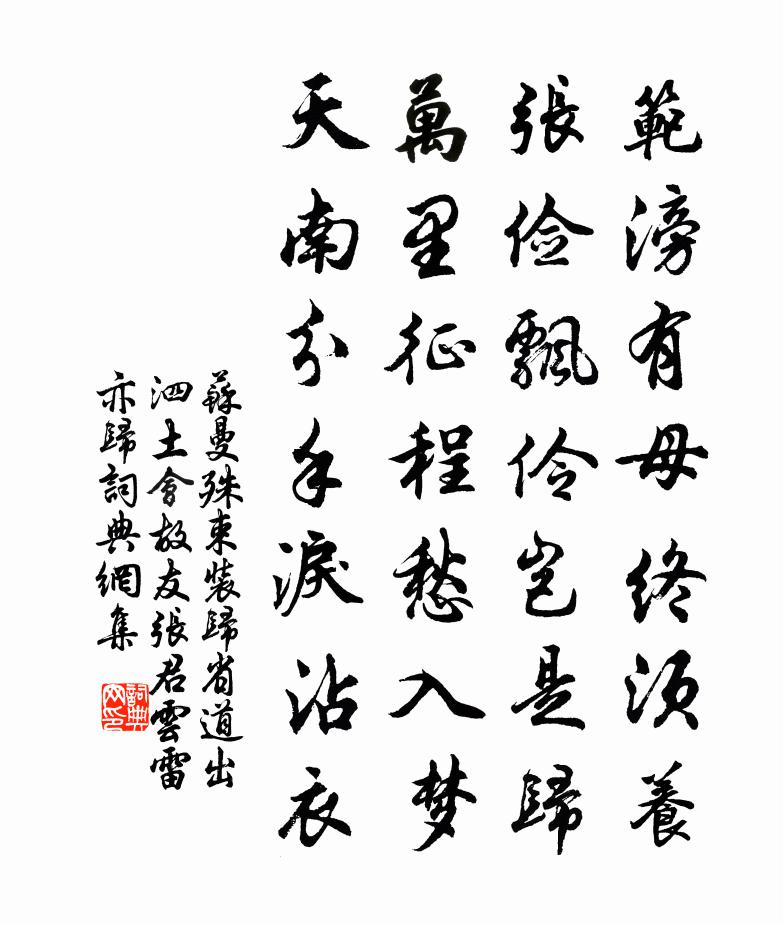 範滂有母終須養
張儉飄伶豈是歸
萬里征程愁入梦
天南分手淚沾衣
蘇曼殊東裝歸省道出
泗土會故友張君雲雷
亦歸詞典網集
詞典网印